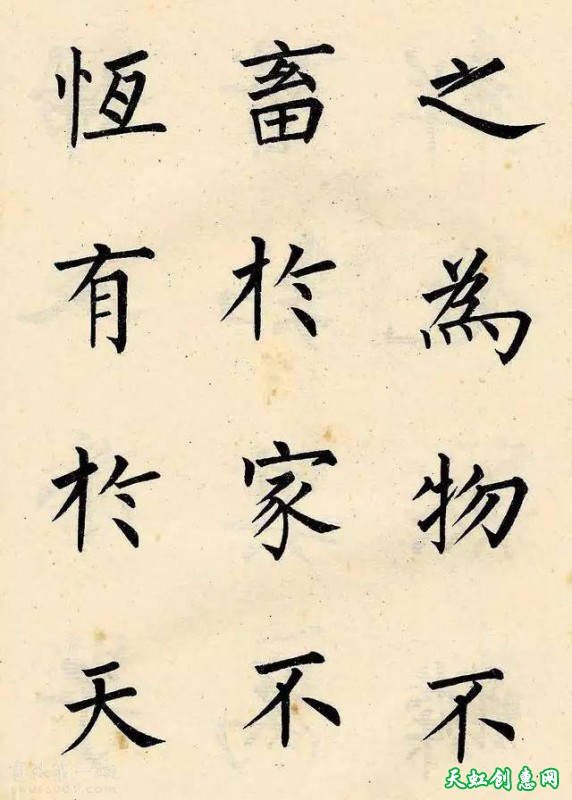 之為物不
畜於家不
恆有於天
天虹创惠网